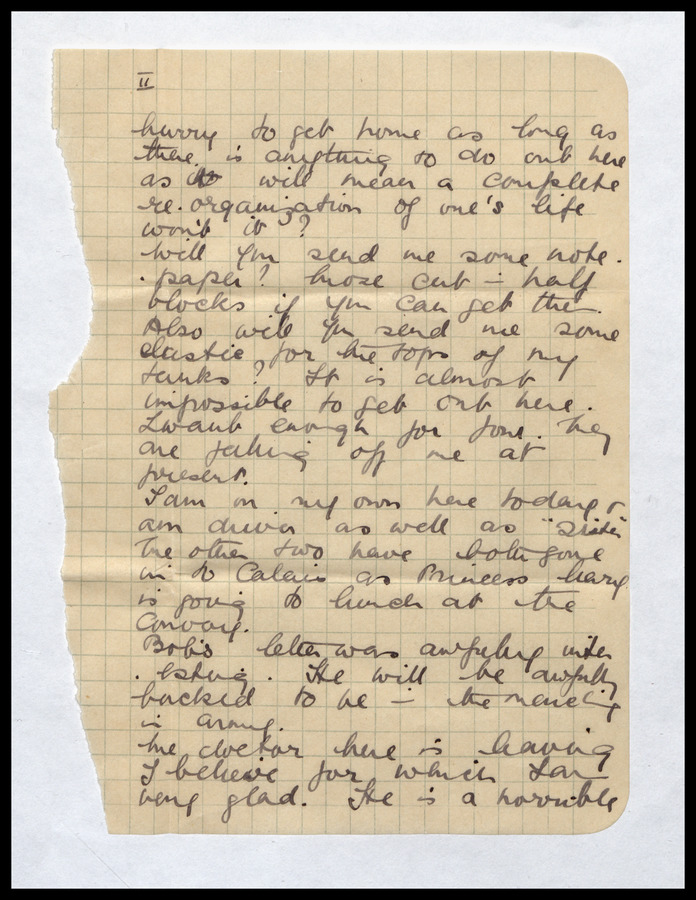 II
hurry to get home as long as
there is anything to do out here
as it will mean a complete
re-organization of one's life
won't it?
Will you send me some note.
. paper? those cut - half
blocks if you can get them.
Also will you send me some
elastic for the tops of my
tanks? It is almost
impossible to get out here.
I want enough for four. They
are falling off me at
present.
I am on my own here today &
am driver as well as "Sister"
The other two have both gone
in to Calais as Princess Mary
is going to lunch at the
Convoy.
Bob's letter was awfully inter
. esting. He will be awfully
bucked to be - the marching
in army.
The doctor here is leaving
I believe for which I am
very glad. He is a horrible